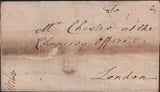 To
Mr. Chesler att the
Chancery Office
London